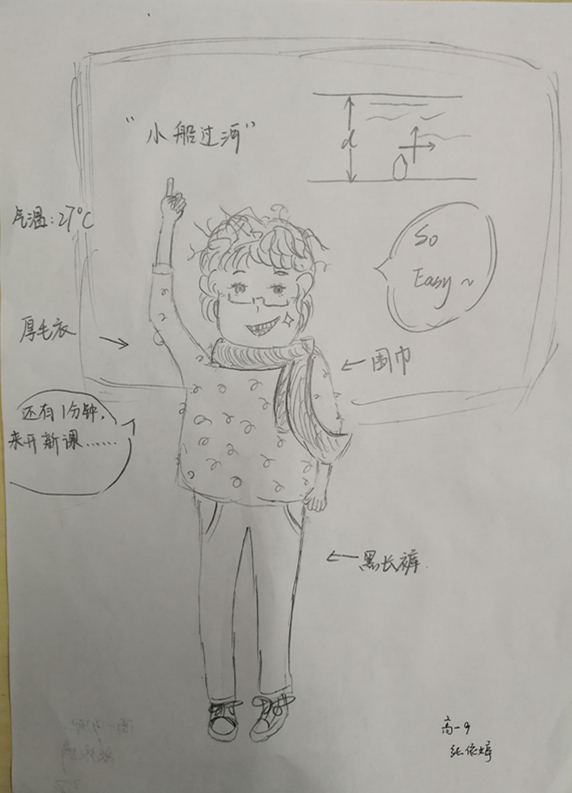 "小船过河"
d
气温:27℃
So
Easy~
厚毛衣
围巾
还有1分钟,
来开新课……
黑长裤
高一9